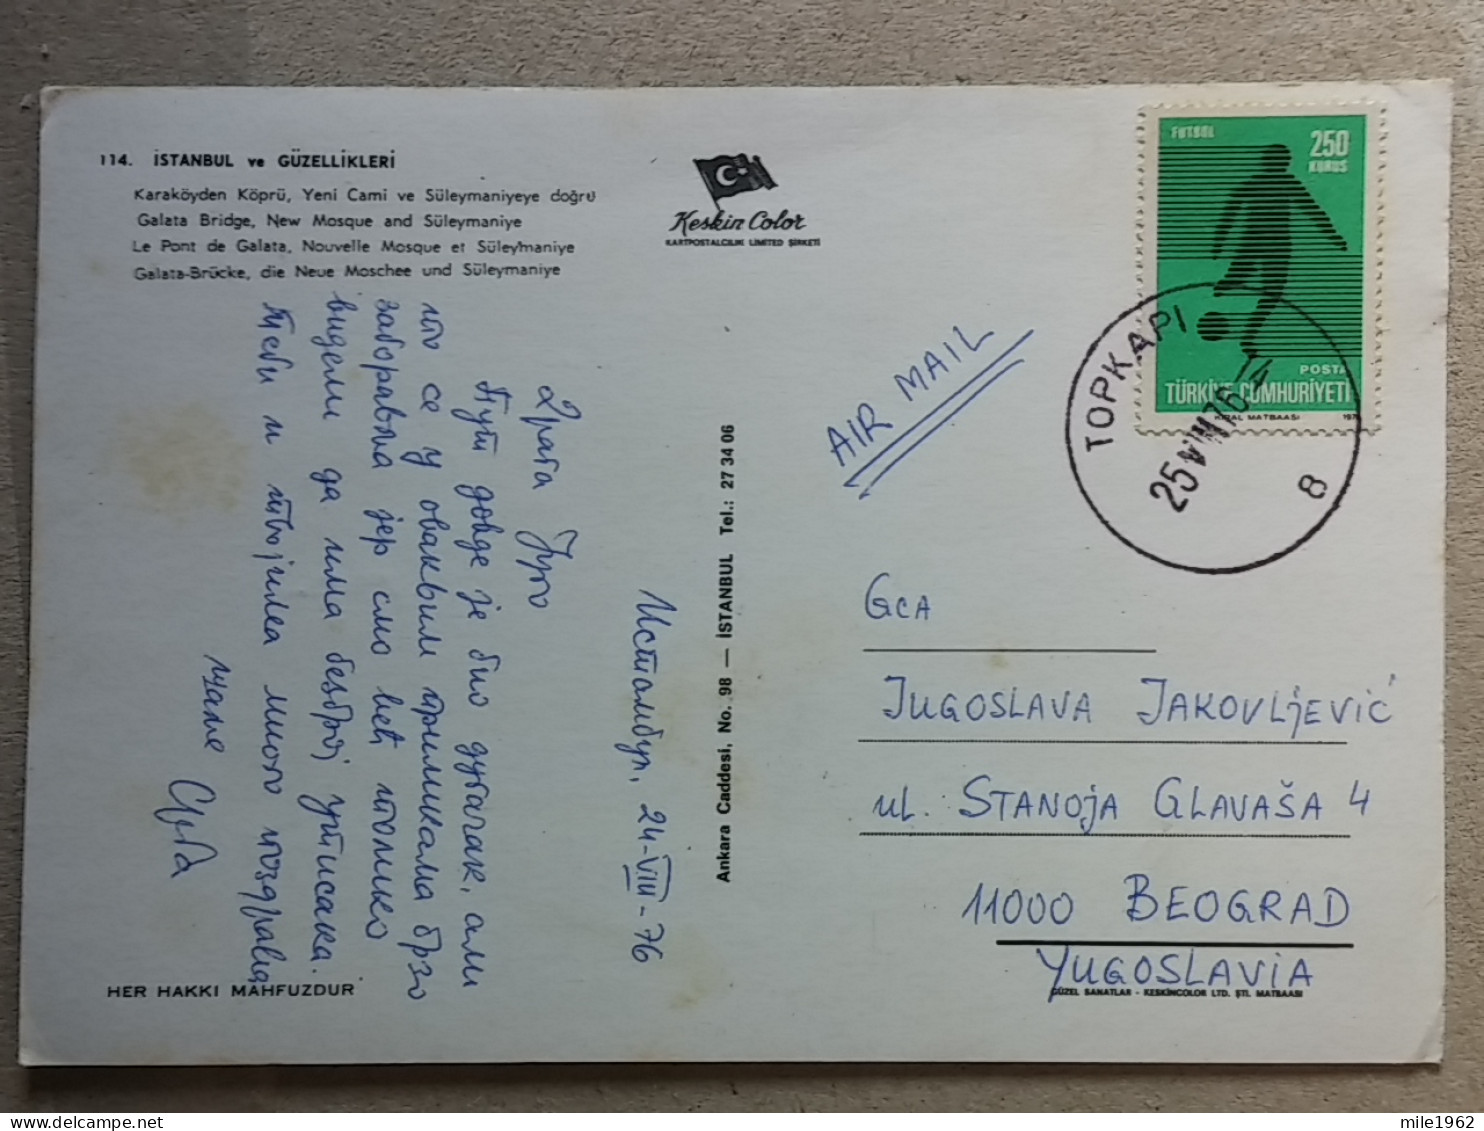 114. İSTANBUL ve GÜZELLİKLERİ
Karaköyden Köprü, Yeni Cami ve Süleymaniyeye doğru
Galata Bridge, New Mosque and Süleymaniye
Le Pont de Galata, Nouvelle Mosque et Süleymaniye
Galata-Brücke, die Neue Moschee und Süleymaniye
Keskin Color
KARTPOSTALCILIK LIMITED ŞİRKETİ
FUTBOL
250
KURUŞ
POSTA
TÜRKİYE CUMHURİYETİ
TOPKAPI
25 VIII 76 - 14
8
AIR MAIL
Истамбул, 24-VIII-76
Драга Југо
Пут довде је био дугачак, али
то се у оваквим приликама брзо
заборавља јер смо већ толико
видели да има безброј утисака.
Теби и твојима много поздрава
шаље
Ankara Caddesi, No. 98 — İSTANBUL Tel.: 27 34 06
GCA
JUGOSLAVA JAKOVLJEVIĆ
ul. STANOJA GLAVAŠA 4
11000 BEOGRAD
YUGOSLAVIA
GÜZEL SANATLAR - KESKİNCOLOR LTD. ŞTİ. MATBAASI
HER HAKKI MAHFUZDUR
mile1962